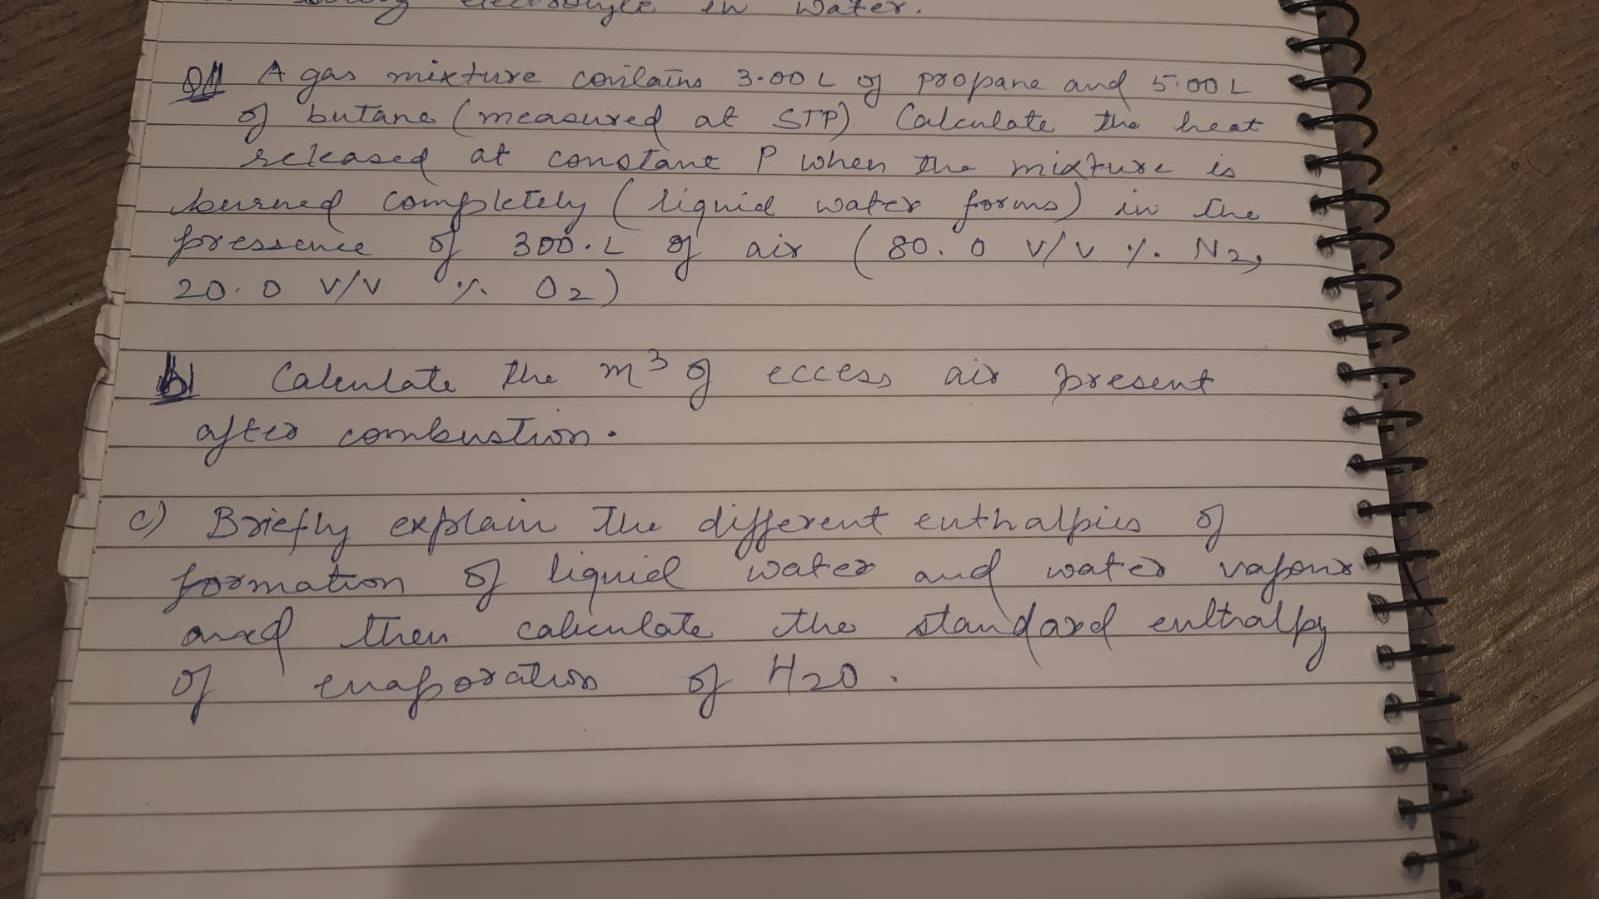 strong electrolyte in water.
Q11 A gas mixture contains 3.00 L of propane and 5.00 L
of butane (measured at STP) Calculate the heat
released at constant P when the mixture is
burned completely (liquid water forms) in the
pressence of 300. L of air (80.0 V/V %. N2,
20.0 V/V %. O2)
b) Calculate the m³ of eccess air present
after combustion.
c) Briefly explain the different enthalpies of
formation of liquid water and water vapour
and then calculate the standard enthalpy
of evaporation of H2O.